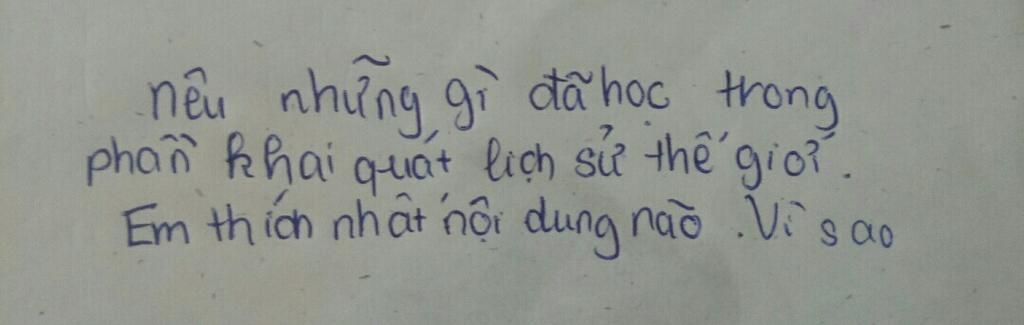 nêu những gì đã học trong
phần khai quát lịch sử thế giới.
Em thích nhất nội dung nào. Vì sao